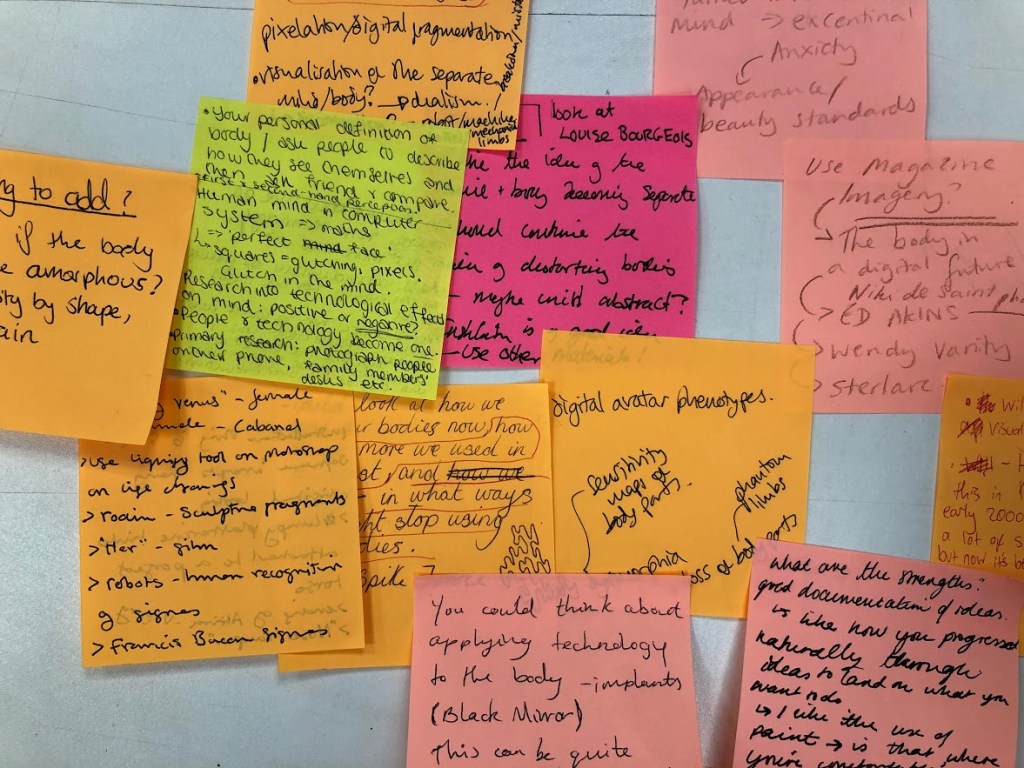 pixelation/digital fragmentation
•visualisation of the separate
mind/body? → dualism.
mechanical
limbs
Turned
mind → excentinal
Anxiety
Appearance/
beauty standards
look at
LOUISE BOURGEOIS
the idea of the
+ body becoming separate
could combine the
of distorting bodies
- maybe until abstract?
is a good idea
- Use other
•Your personal definition of
body / ask people to describe
how they see themselves and
then ask friend & compare.
first & second-hand perception.
Human mind in computer
systems => maths
=> perfect mind face.
squares = glitching, pixels.
Glitch in the mind.
Research into technological effect
on mind: positive or negative?
•People & technology become one.
primary research: photograph people
on their phone, family members'
desks etc.
Use Magazine
Imagery?
The body in
a digital future
Niki de saint pha
ED AKINS
wendy varity
sterlarc
ng to add?
if the body
amorphous?
ity by shape,
ain
venus" - female
- Cabanel
>use liquify tool on photoshop
on life drawings
>rodin - sculptue fragments
>"Her" - film
> robots - human recognition
of signes
> Francis Bacon figures
look at how we
bodies now, how
more we used in
, and how we
- in what ways
ght stop using
dies.
spike?
materials!
digital avatar phenotypes.
sensitivity
maps of
body parts.
phantom
limbs
loss of bod parts
• Wil
Visual
this in
early 2000
a lot of s
but now its be
You could think about
applying technology
to the body - implants
(Black Mirror)
This can be quite
what are the strengths?
good documentation of ideas.
↳ like how you progressed
naturally through
ideas to land on what you
want to do
↳ I like the use of
paint → is that where
you're comfortable